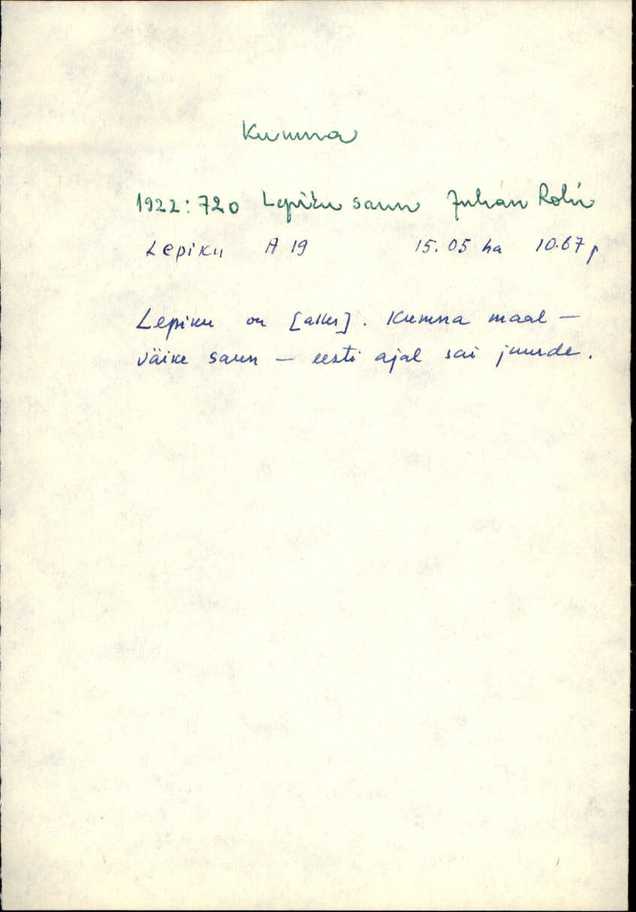 Kumna
1922:720 Lepiku saun Juhan Rolin
Lepiku A 19 15.05 ha 10.67 p
Lepiku on [alles]. Kumna maal –
väike saun – eesti ajal sai juurde.